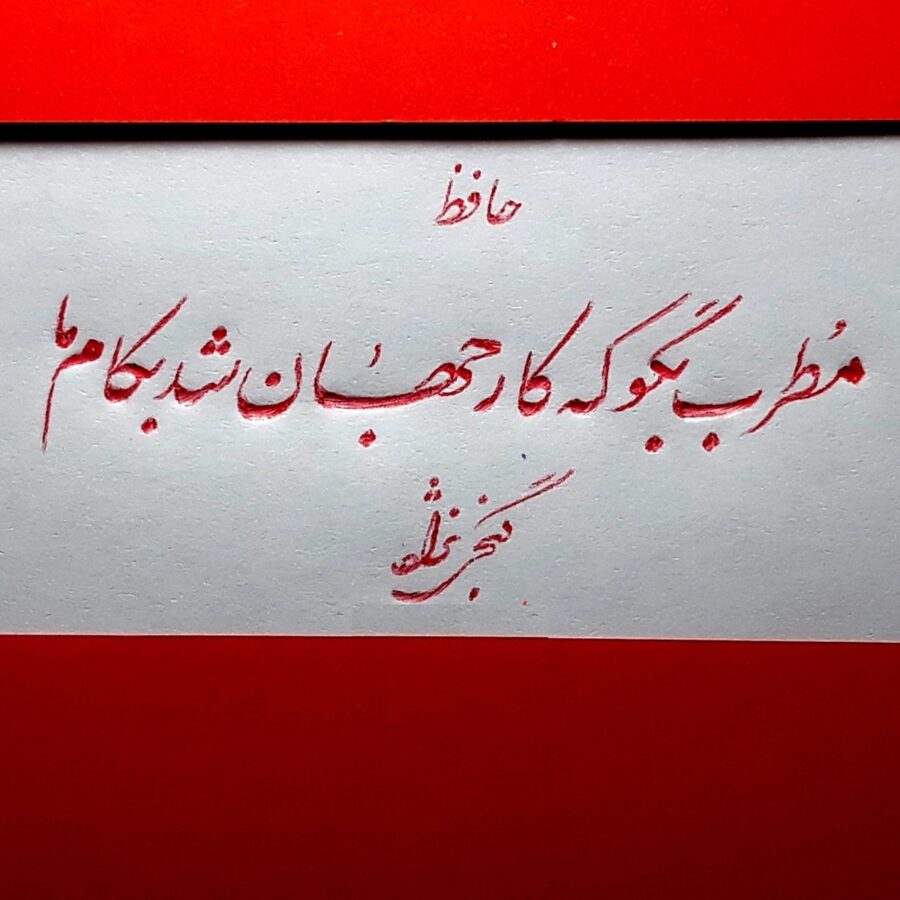 حافظ
مُطرب بگو که کار جهان شد بکام ما
گنجی نژاد